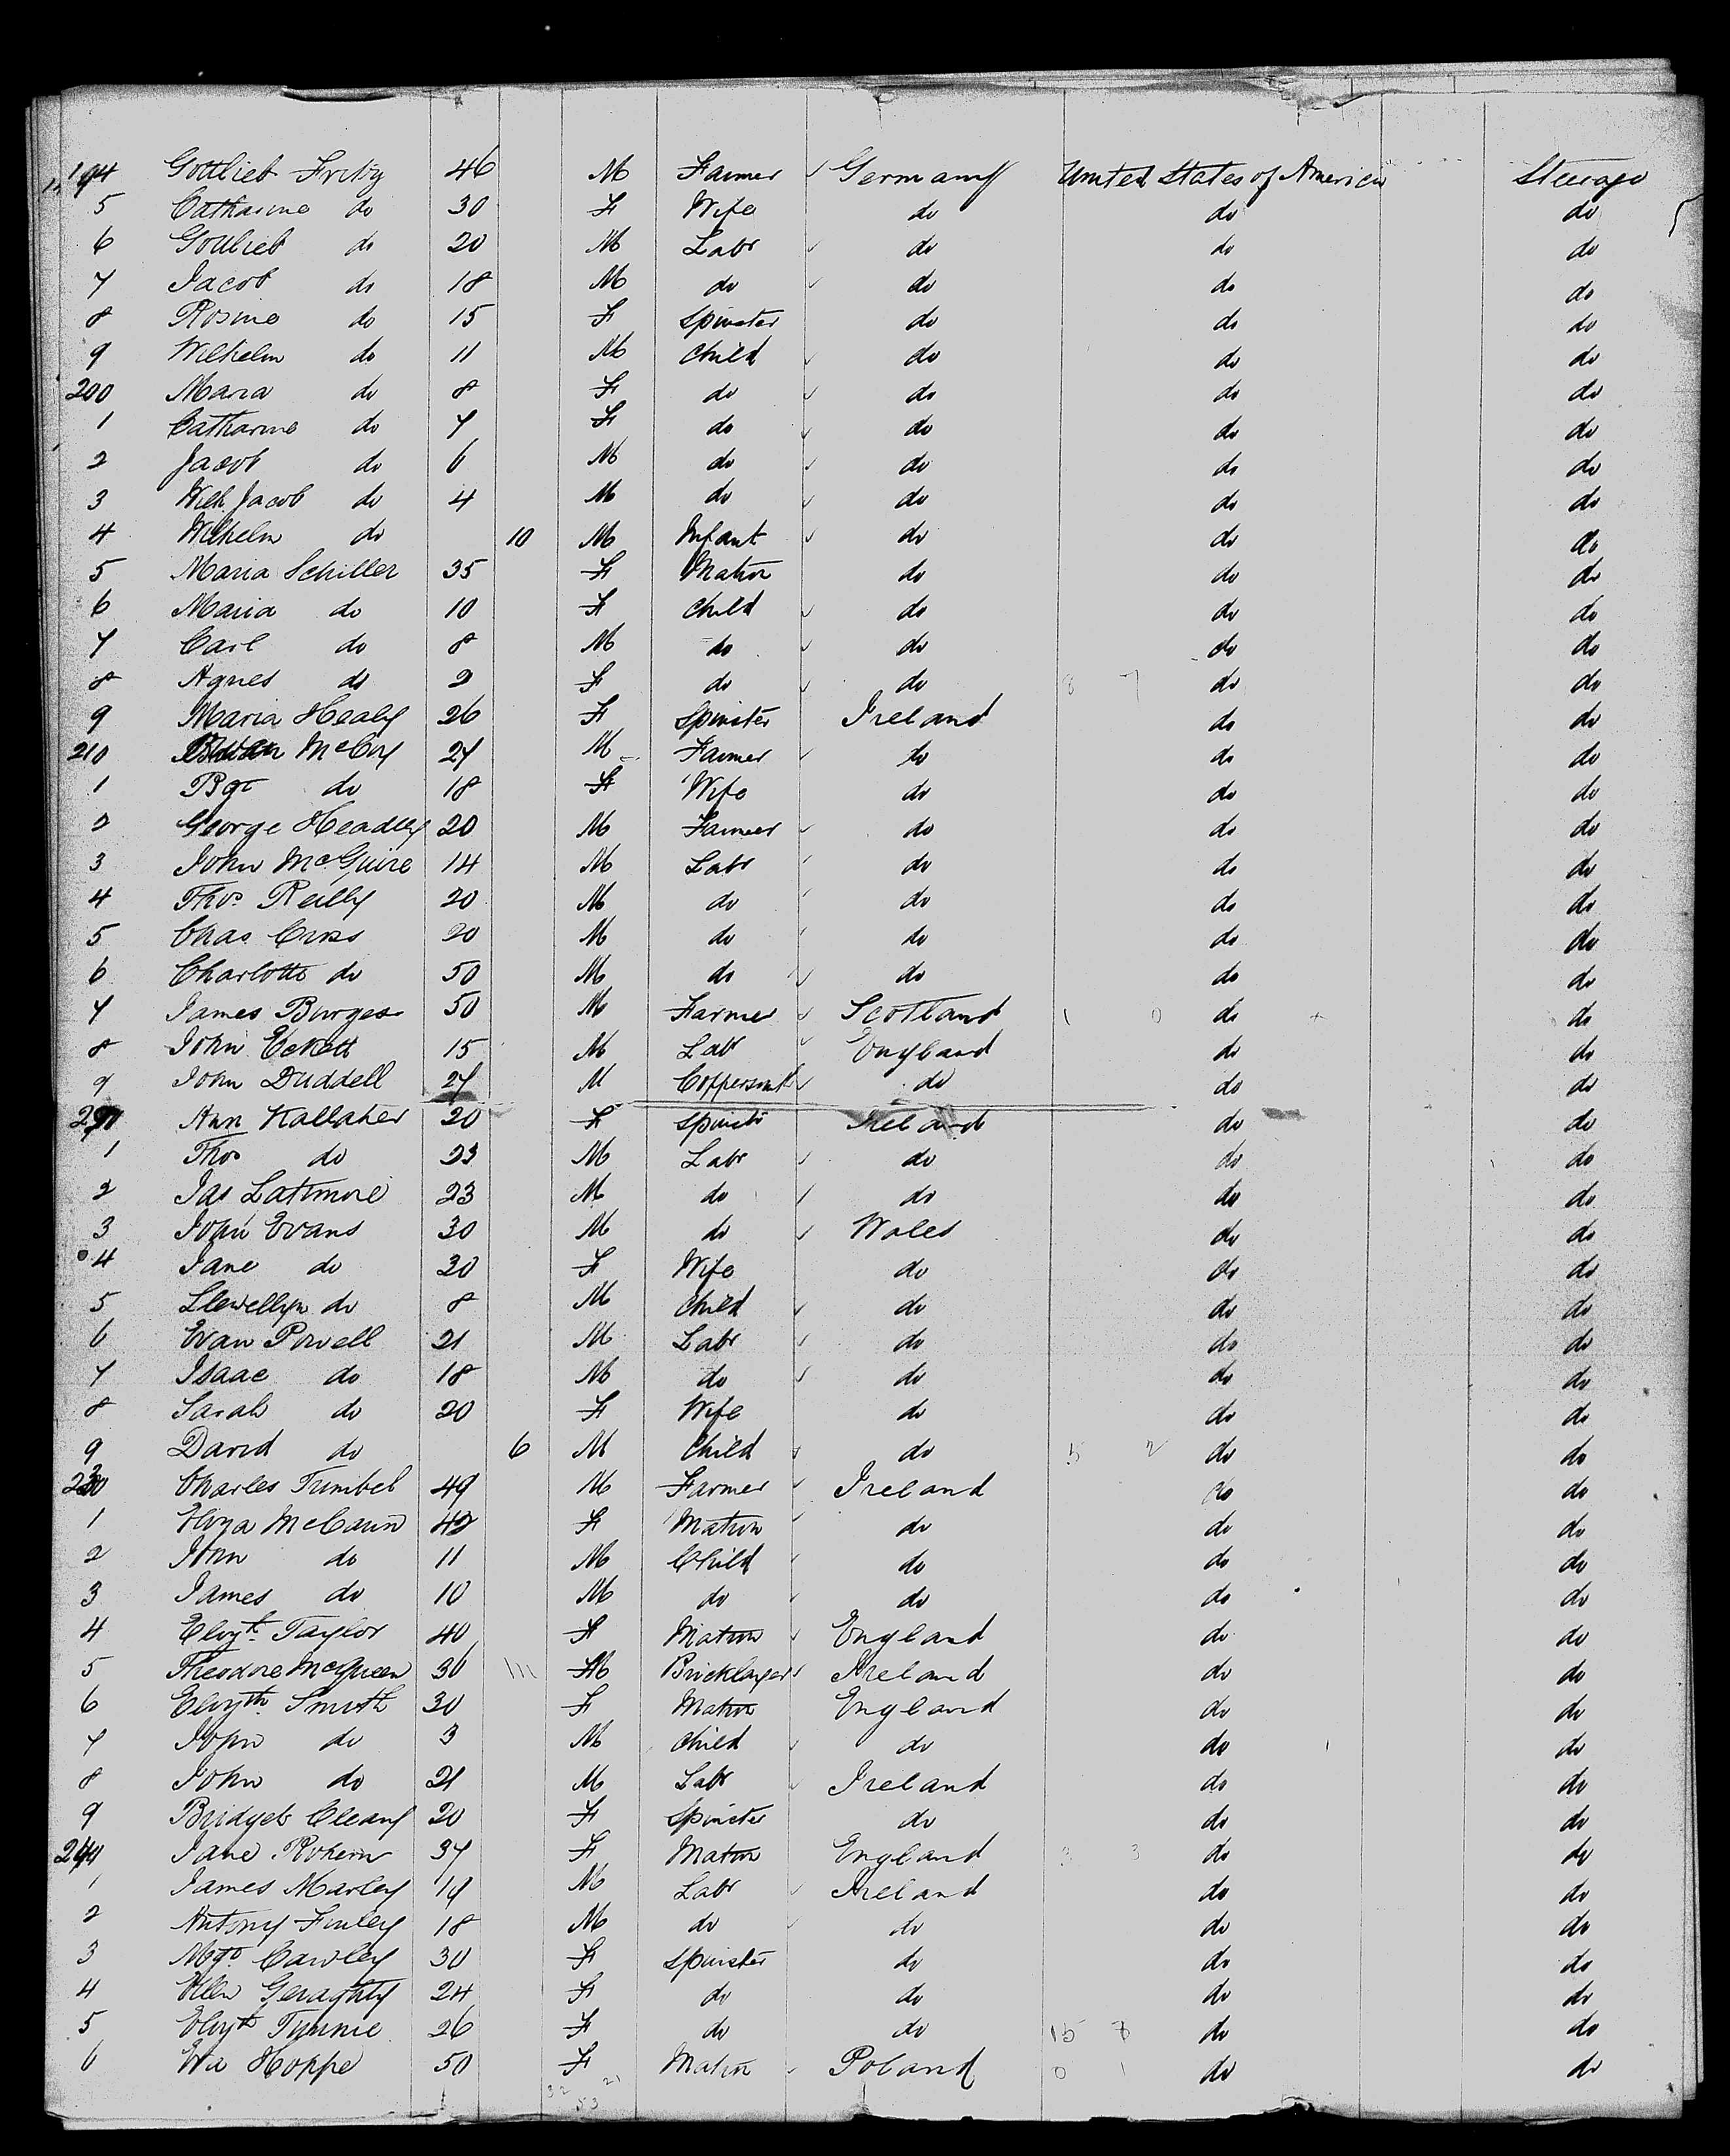 194 Gottlieb Fritz 46 M Farmer Germany United States of America Steerage
5 Catharine do 30 F Wife do do do
6 Gottlieb do 20 M Labr do do do
7 Jacob do 18 M do do do do
8 Rosine do 15 F Spinster do do do
9 Wilhelm do 11 M Child do do do
200 Maria do 8 F do do do do
1 Catharine do 7 F do do do do
2 Jacob do 6 M do do do do
3 Wilh Jacob do 4 M do do do do
4 Wilhelm do 10 M Infant do do do
5 Maria Schiller 35 F Matron do do do
6 Maria do 10 F Child do do do
7 Carl do 8 M do do do do
8 Agnes do 2 F do do 8 7 do do
9 Maria Healy 26 F Spinster Ireland do do
210 McCoy 27 M Farmer do do do
1 Bgt do 18 F Wife do do do
2 George Headley 20 M Farmer do do do
3 John McGuire 14 M Labr do do do
4 Thos Reilly 20 M do do do do
5 Chas Cross 20 M do do do do
6 Charlotte do 50 M do do do do
7 James Burges 50 M Farmer Scotland 1 0 do do
8 John Eckett 15 M Labr England do do
9 John Duddell 27 M Coppersmith do do do
Ann Kallaher 20 F Spinstr Ireland do do
1 Thos do 23 M Labr do do do
2 Jas Latimore 23 M do do do do
3 John Evans 30 M do Wales do do
4 Jane do 30 F Wife do do do
5 Llewellyn do 8 M Child do do do
6 Evan Powell 21 M Labr do do do
7 Isaac do 18 M do do do do
8 Sarah do 20 F Wife do do do
9 David do 6 M Child do 5 2 do do
230 Charles Trimbel 49 M Farmer Ireland do do
1 Eliza McCann 42 F Matron do do do
2 John do 11 M Child do do do
3 James do 10 M do do do do
4 Elizt Taylor 40 F Matron England do do
5 Theodore McQueen 36 M Bricklayer Ireland do do
6 Elizth Smith 30 F Matron England do do
7 John do 3 M Child do do do
8 John do 21 M Labr Ireland do do
9 Bridget Cleary 20 F Spinster do do do
240 Jane 37 F Matron England 3 3 do do
1 James Marley 17 M Labr Ireland do do
2 Antony Finley 18 M do do do do
3 Mgt Cawley 30 F Spinster do do do
4 Ellen Geraghty 24 F do do do do
5 Elizt 26 F do do 15 8 do do
6 Eva Hoppe 50 F Matron Poland 0 1 do do
32 21
53